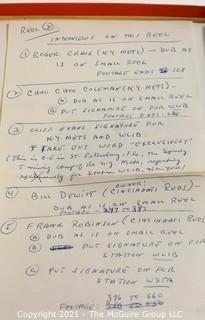 REEL 2
INTERVIEWS ON THIS REEL
1 ROGER CRAIG (N.Y. METS) - DUB AS
IS ON SMALL REEL
FOOTAGE ENDS 108
2 CHOO CHOO COLEMAN (N.Y. METS) -
A DUB AS IS ON SMALL REEL
B PUT SIGNATURE ON FOR WLIB
FOOTAGE ENDS:
3 CLIFF EVANS SIGNATURE FOR
N.Y. METS AND WLIB.
* TAKE OUT WORD "EXCLUSIVELY"
(This is C.E. in St. Petersburg, Fla., the Spring
Training camp of the N.Y. Mets, reporting
for Station WLIB, New York)
OWNER!
4 BILL DEWITT (CINCINNATI REDS) -
DUB AS IS ON SMALL REEL
FOOTAGE -
5 FRANK ROBINSON (CINCINNATI REDS)
A DUB AS IS ON SMALL REEL
B PUT SIGNATURE ON FOR
STATION WLIB
C PUT SIGNATURE ON FOR
STATION
396 TO 660
FOOTAGE:
Copyright 2021 - The McGuire Group LLC